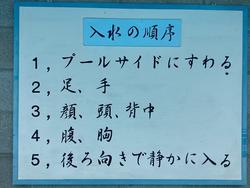 入水の順序
1，プールサイドにすわる。
2，足、手
3，顔、頭、背中
4，腹、胸
5，後ろ向きで静かに入る